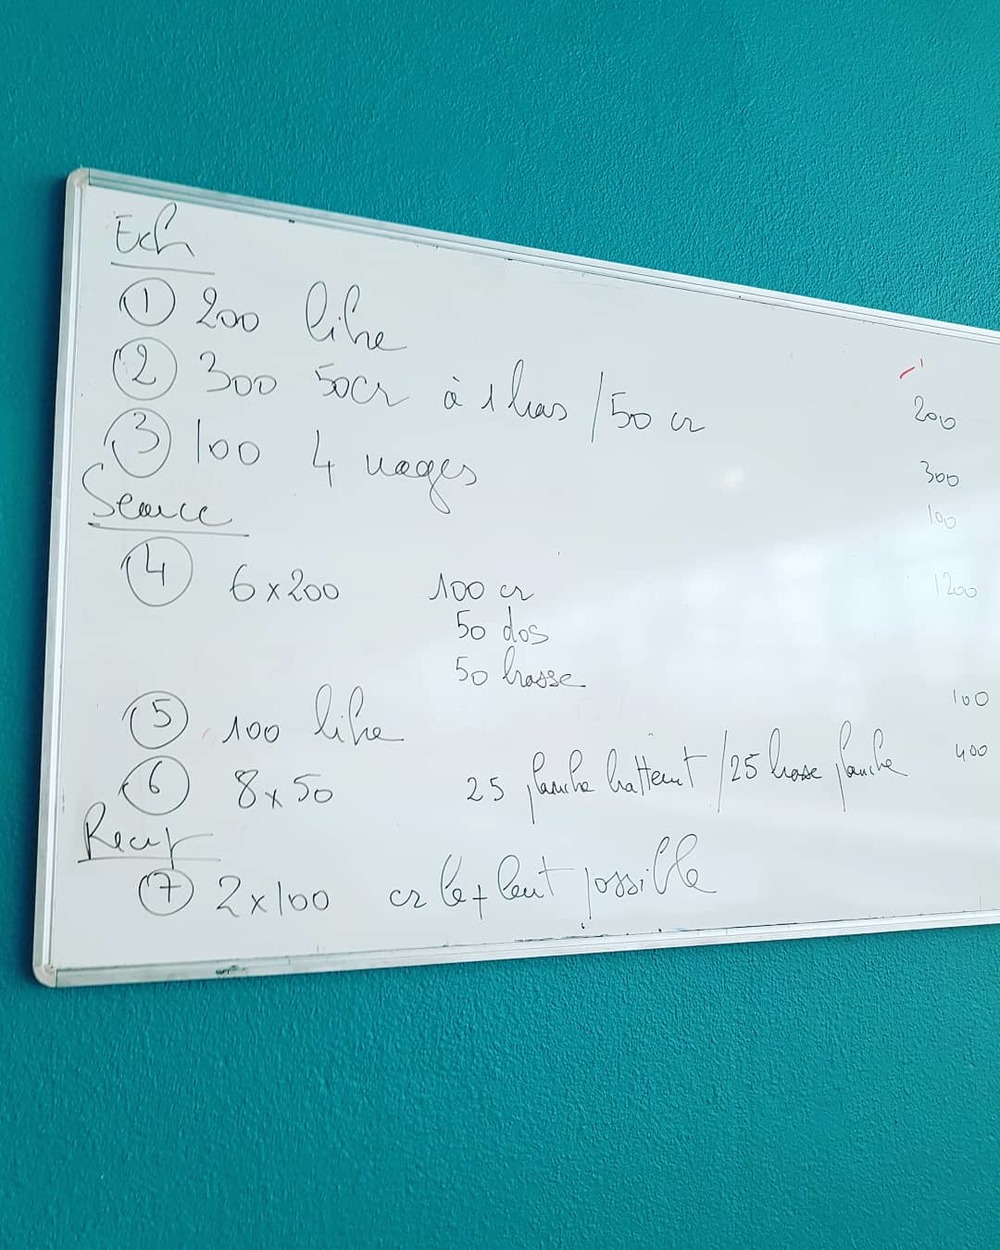 Ech
① 200 libre
② 300 50cr à 1 bras / 50 cr 200
③ 100 4 nages 300
Seance 100
④ 6x200 100 cr 1200
50 dos
50 brasse
⑤ 100 libre 100
⑥ 8x50 25 planche battement / 25 brasse planche 400
Recup
⑦ 2x100 cr le + lent possible